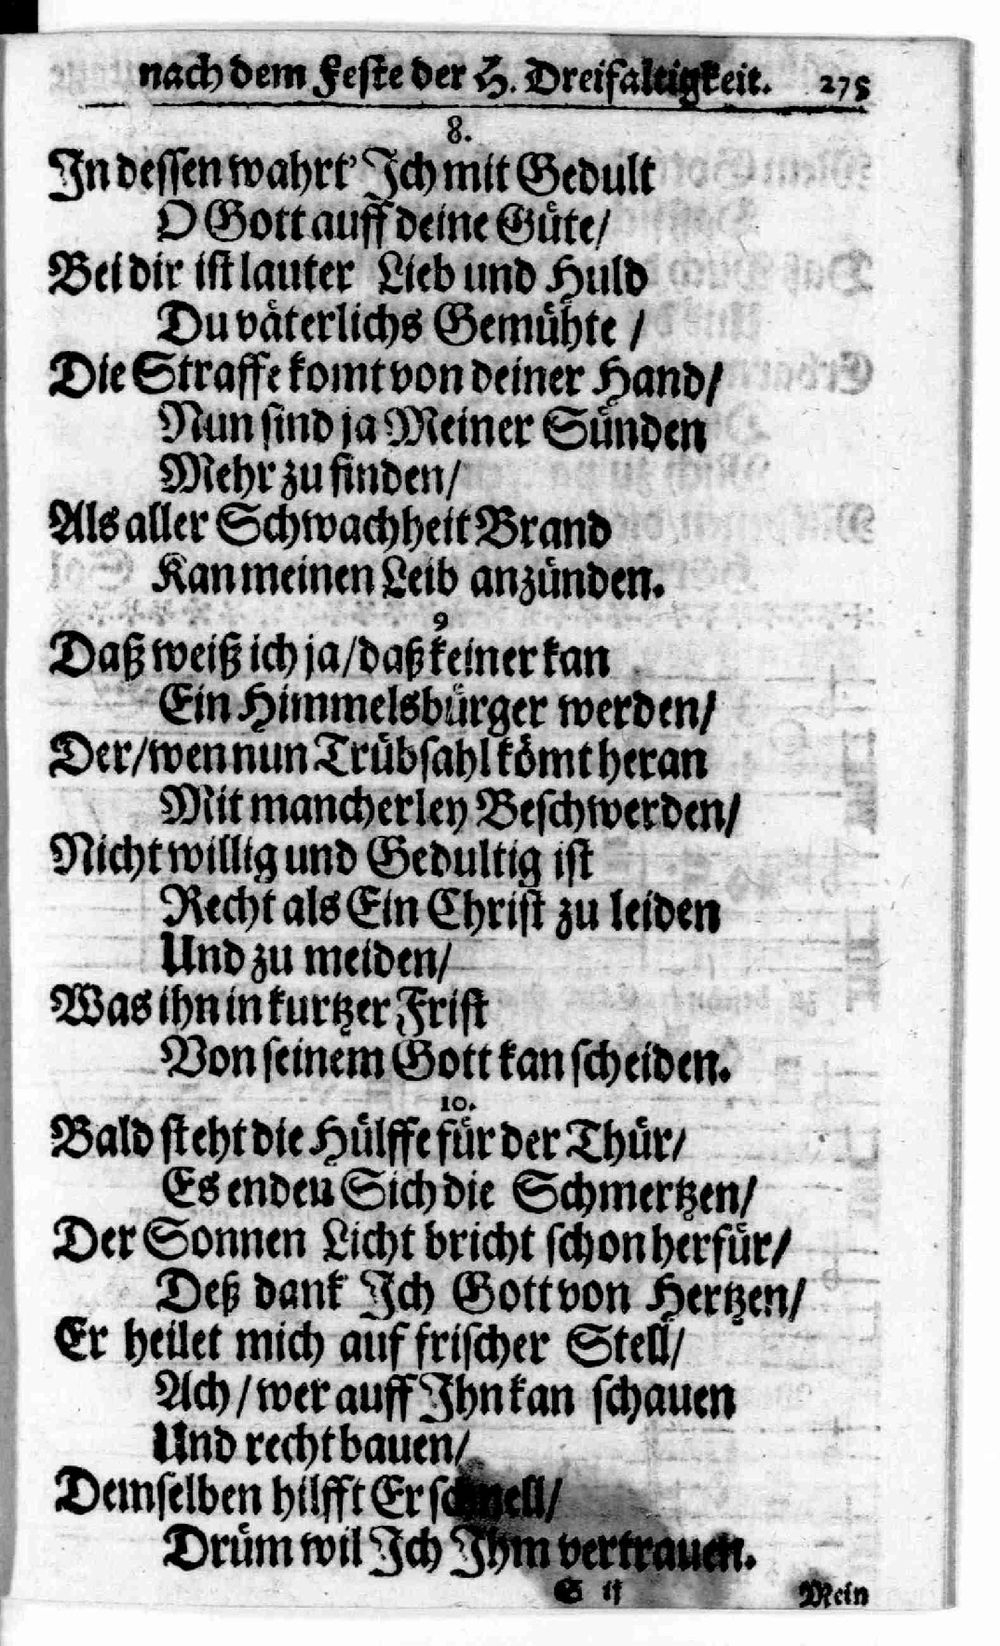 nach dem Feste der H. Dreifaltigkeit. 275
8.
In dessen wahrt' Ich mit Gedult
O Gott auff deine Güte/
Bei dir ist lauter Lieb und Huld
Du väterlichs Gemühte /
Die Straffe komt von deiner Hand/
Nun sind ja Meiner Sünden
Mehr zu finden/
Als aller Schwachheit Brand
Kan meinen Leib anzünden.
9
Daß weiß ich ja/daß keiner kan
Ein Himmelsbürger werden/
Der/wen nun Trübsahl kömt heran
Mit mancherley Beschwerden/
Nicht willig und Gedultig ist
Recht als Ein Christ zu leiden
Und zu meiden/
Was ihn in kurtzer Frist
Von seinem Gott kan scheiden.
10.
Bald steht die Hülffe für der Thür/
Es enden Sich die Schmertzen/
Der Sonnen Licht bricht schon herfür/
Deß dank Ich Gott von Hertzen/
Er heilet mich auf frischer Stell/
Ach/wer auff Ihn kan schauen
Und recht bauen/
Demselben hilfft Er schnell/
Drüm wil Ich Ihm vertrauen.
S ij Mein